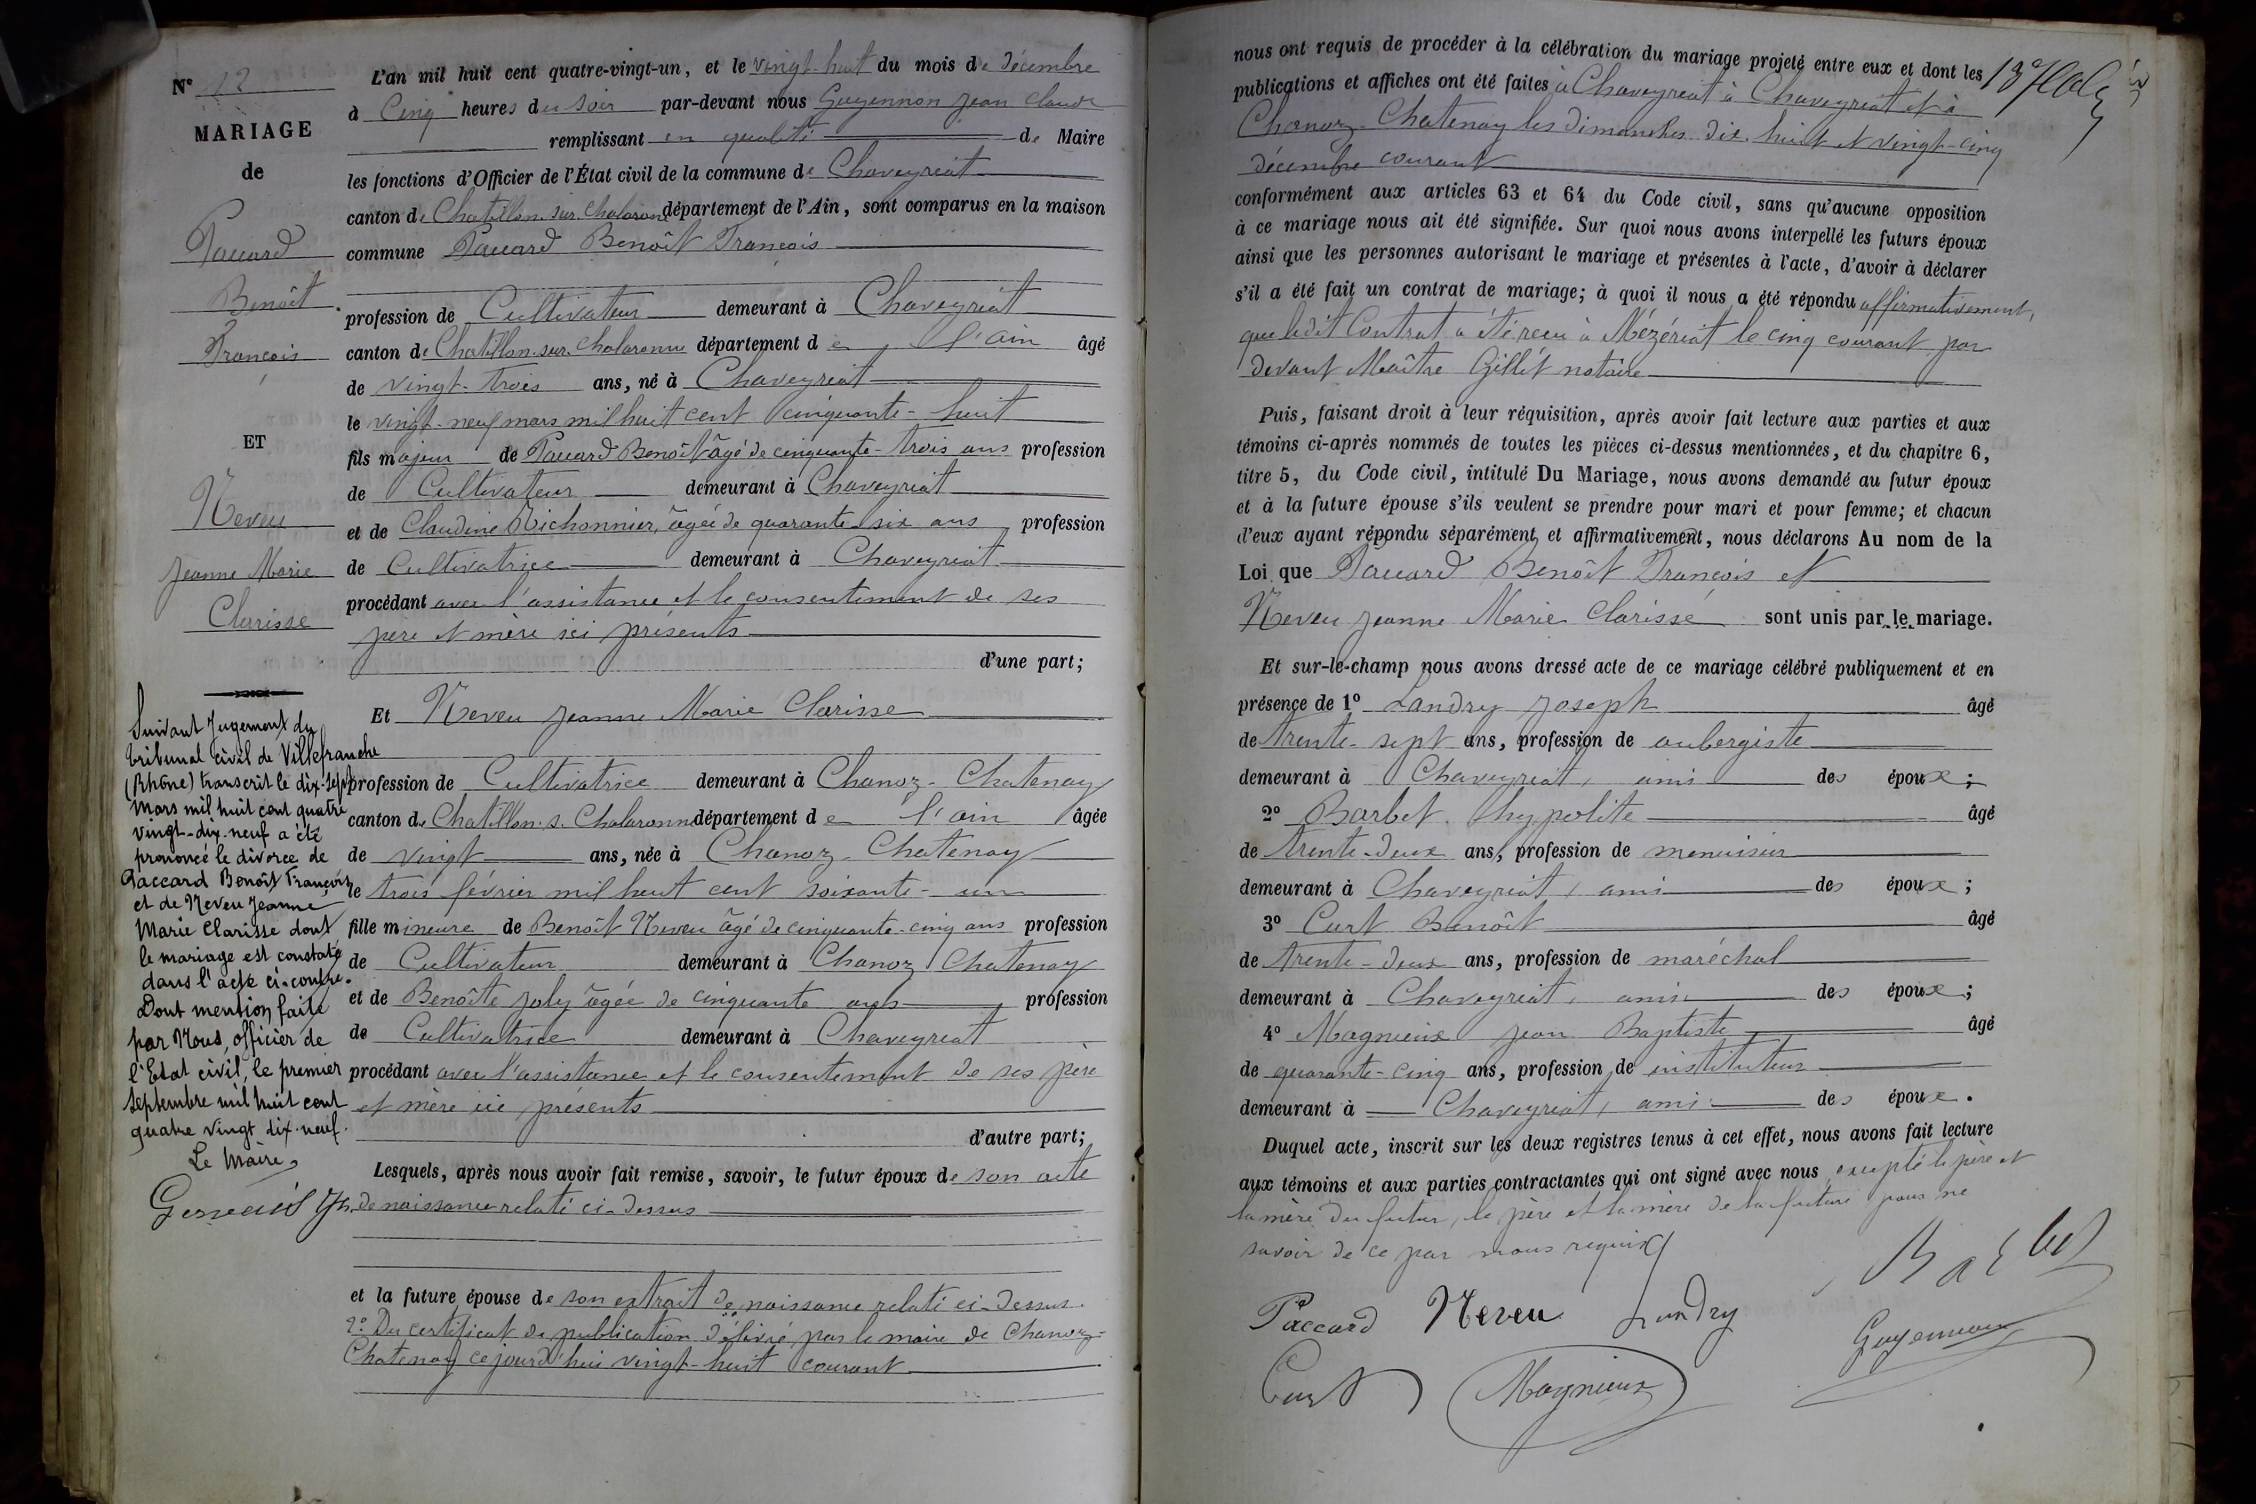 N° 12
MARIAGE
de
Paccard
Benoît
François
ET
Neveu
Jeanne Marie
Clarisse
Suivant jugement du
tribunal civil de Villefranche
(Rhône) transcrit le dix-sept
mars mil huit cent quatre
vingt-dix-neuf a été
prononcé le divorce de
Paccard Benoît François
et de Neveu Jeanne
Marie Clarisse dont
le mariage est constaté
dans l'acte ci-contre.
Dont mention faite
par Nous, officier de
l'Etat civil, le premier
septembre mil huit cent
quatre vingt dix-neuf.
Le Maire,
L'an mil huit cent quatre-vingt-un, et le vingt-huit du mois de décembre
à Cinq heures du soir par-devant nous Guyennon Jean Claude
remplissant en qualité de Maire
les fonctions d'Officier de l'État civil de la commune de Chaveyriat
canton de Chatillon-sur-Chalaronne département de l'Ain, sont comparus en la maison
commune Paccard Benoît François
profession de Cultivateur demeurant à Chaveyriat
canton de Chatillon-sur-Chalaronne département de l'ain âgé
de vingt-trois ans, né à Chaveyriat
le vingt-neuf mars mil huit cent cinquante-huit
fils majeur de Paccard Benoît âgé de cinquante-trois ans profession
de Cultivateur demeurant à Chaveyriat
et de Claudine Nichonnier, âgée de quarante-six ans profession
de Cultivatrice demeurant à Chaveyriat
procédant avec l'assistance et le consentement de ses
père et mère ici présents
d'une part;
Et Neveu Jeanne Marie Clarisse
profession de Cultivatrice demeurant à Chanoz-Chatenay
canton de Chatillon-s-Chalaronne département de l'ain âgée
de vingt ans, née à Chanoz-Chatenay
le trois février mil huit cent soixante-un
fille mineure de Benoît Neveu âgé de cinquante-cinq ans profession
de Cultivateur demeurant à Chanoz Chatenay
et de Benoîte Joly âgée de cinquante ans profession
de Cultivatrice demeurant à Chaveyriat
procédant avec l'assistance et le consentement de ses père
et mère ici présents
d'autre part;
Lesquels, après nous avoir fait remise, savoir, le futur époux de son acte
de naissance relaté ci-dessus
et la future épouse de son extrait de naissance relaté ci-dessus.
2° Du certificat de publication délivré par le maire de Chanoz-
Chatenay ce jourd'hui vingt-huit courant
nous ont requis de procéder à la célébration du mariage projeté entre eux et dont les
publications et affiches ont été faites à Chaveyriat à Chaveyriat et à
Chanoz-Chatenay les dimanches dix-huit et vingt-cinq
décembre courant
conformément aux articles 63 et 64 du Code civil, sans qu'aucune opposition
à ce mariage nous ait été signifiée. Sur quoi nous avons interpellé les futurs époux
ainsi que les personnes autorisant le mariage et présentes à l'acte, d'avoir à déclarer
s'il a été fait un contrat de mariage; à quoi il nous a été répondu affirmativement,
que ledit Contrat a été reçu à Mézériat le cinq courant par
devant Maître Gillet notaire
Puis, faisant droit à leur réquisition, après avoir fait lecture aux parties et aux
témoins ci-après nommés de toutes les pièces ci-dessus mentionnées, et du chapitre 6,
titre 5, du Code civil, intitulé Du Mariage, nous avons demandé au futur époux
et à la future épouse s'ils veulent se prendre pour mari et pour femme; et chacun
d'eux ayant répondu séparément et affirmativement, nous déclarons Au nom de la
Loi que Paccard Benoît François et
Neveu Jeanne Marie Clarisse sont unis par le mariage.
Et sur-le-champ nous avons dressé acte de ce mariage célébré publiquement et en
présence de 1° Landry Joseph âgé
de trente-sept ans, profession de aubergiste
demeurant à Chaveyriat, ami des époux;
2° Barbet hypolite âgé
de trente-deux ans, profession de menuisier
demeurant à Chaveyriat, ami des époux;
3° Curt Benoît âgé
de trente-deux ans, profession de maréchal
demeurant à Chaveyriat, ami des époux;
4° Magnieux Jean Baptiste âgé
de quarante-cinq ans, profession de instituteur
demeurant à Chaveyriat, ami des époux.
Duquel acte, inscrit sur les deux registres tenus à cet effet, nous avons fait lecture
aux témoins et aux parties contractantes qui ont signé avec nous excepté le père et
la mère du futur, le père et la mère de la future pour ne
savoir de ce par nous requis
Barbet
Paccard Neveu Landry
Guyennon
Curt Magnieux